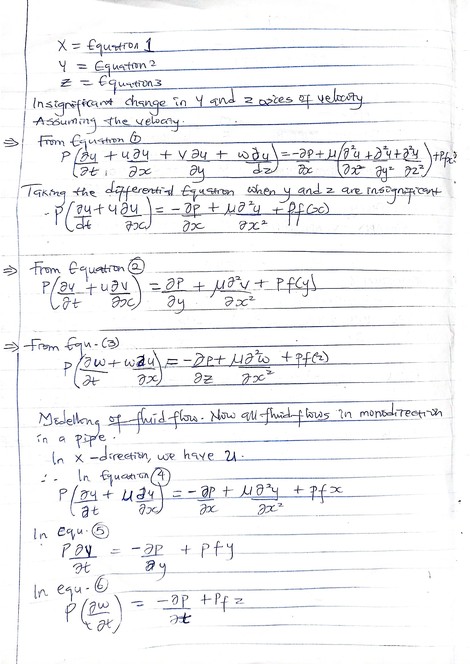 X = Equation 1
Y = Equation 2
Z = Equation 3
Insignificant change in Y and Z axies of velocity
Assuming the velocity.
⇒ From Equation ①
P(∂u/∂t + u∂u/∂x + v∂u/∂y + w∂u/dz) = -∂P/∂x + μ(∂²u/∂x² + ∂²u/∂y² + ∂²u/∂z²) + Pfx
Taking the differential Equation when y and z are insignificant
P(∂u/dt + u∂u/∂x) = -∂P/∂x + μ∂²u/∂x² + Pf(x)
⇒ From Equation ②
P(∂v/∂t + u∂v/∂x) = ∂P/∂y + μ∂²v/∂x² + Pf(y)
⇒ From Equ. (3)
P(∂w/∂t + w∂u/∂x) = -∂P/∂z + μ∂²w/∂x² + Pf(z)
Modelling of fluid flow. Now all fluid flows in monodirection
in a pipe.
In X-direction, we have u.
∴ In Equation ④
P(∂u/∂t + u∂u/∂x) = -∂P/∂x + μ∂²u/∂x² + Pfx
In equ. ⑤
P∂v/∂t = -∂P/∂y + Pfy
In equ. ⑥
P(∂w/∂t) = -∂P/∂t + Pfz